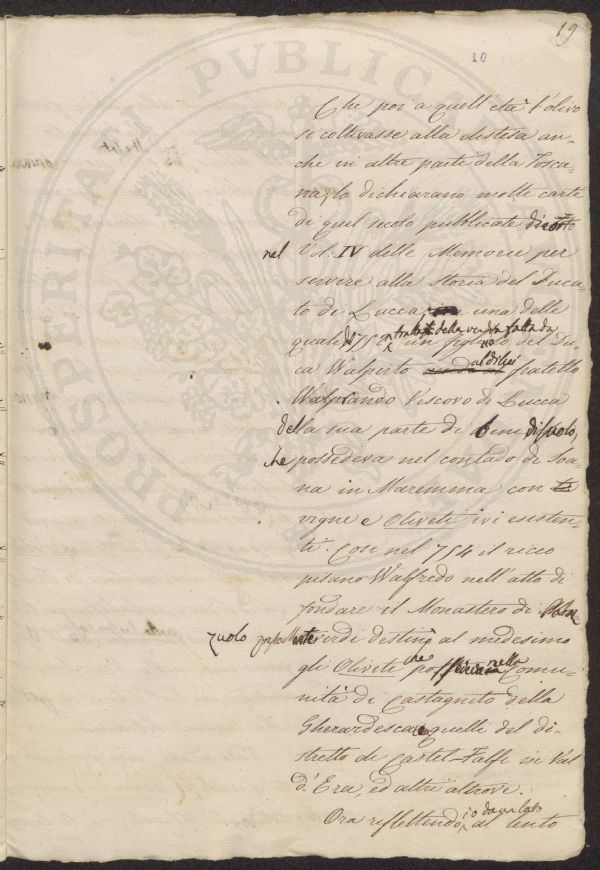 19
10
PROSPERITATI PVBLICAE
Che poi a quell'età l'olivo
si coltivasse alla distesa an-
che in altre parti della Tosca-
na, lo dichiarano molte carte
di quel secolo pubblicate
nel Vol: IV delle Memorie per
servire alla storia del Duca-
to di Lucca, una delle
quali trattasi della vendita fatta da
un figlio del Du-
ca Walperto al di lui fratello
Walprando Vescovo di Lucca
della sua parte di beni di suolo,
che possedeva nel contado di Soa-
na in Maremma con
vigne e Oliveti ivi esisten-
ti. Così nel 754 il ricco
pisano Walfredo nell'atto di
fondare il Monastero di Palaz
zuolo presso Monteverdi destinò al medesimo
gli Oliveti che possedeva nella Comu-
nità di Castagneto della
Gherardesca, quelli del di-
stretto di Castel-Falfi in Val
d'Era, ed altri altrove.
Ora riflettendo io da un lato al lento